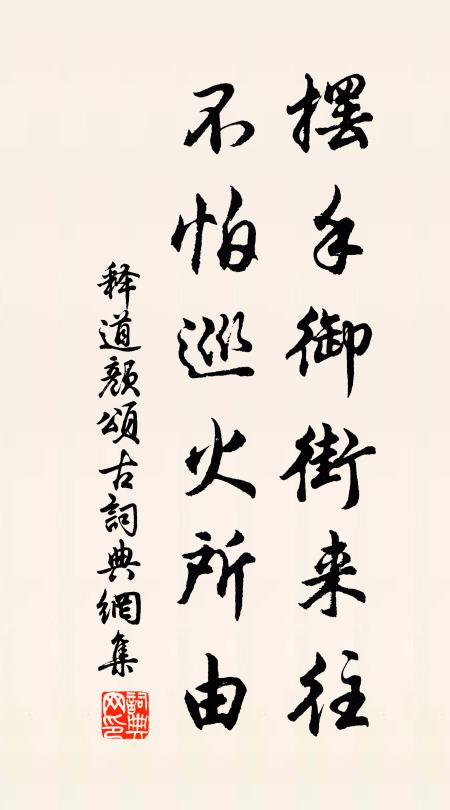 擺手御街来往
不怕巡火所由
释道颜頌古詞典網集
詞典網印